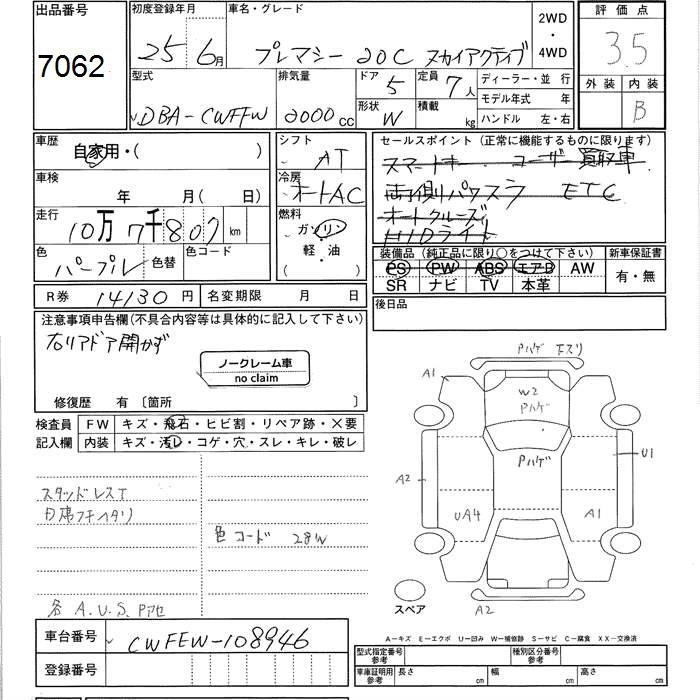 出品番号 初度登録年月 車名・グレード 2WD・4WD 評価点
7062 25 6月 プレマシー 20C スカイアクティブ 3.5
型式 排気量 ドア 5 定員 7人 ディーラー・並行 外装 内装
DBA-CWFFW 2000cc 形状 W 積載 kg モデル年式 年 B
ハンドル 左・右
車歴 自家用・( ) シフト AT セールスポイント (正常に機能するものに限ります)
スマートキー ユーザー買取車
車検 年 月( 日) 冷房 オートAC 両側パワスラ ETC
走行 10万7千807km 燃料 ガソリン・軽・油・ オートクルーズ
HIDライト
色 パープル 色替 色コード 装備品 (純正品に限り○をつけて下さい) 新車保証書
PS PW ABS エアB AW 有・無
SR ナビ TV 本革
R券 14130円 名変期限 月 日 後日品
注意事項申告欄(不具合内容等は具体的に記入して下さい)
右リアドア開かず
ノークレーム車
no claim
修復歴 有 〔箇所 〕
検査員 FW キズ・飛石・ヒビ割・リペア跡・×要
記入欄 内装 キズ・汚レ・コゲ・穴・スレ・キレ・破レ
Pハゲ 下スリ
A1
W2
Pハゲ
Pハゲ
U1
A2
UA4
A1
スペア
A2
スタッドレスT
色コード 28W
各 A.U.S. Pアセ
A―キズ E―エクボ U―凹み W―補修跡 S―サビ C―腐食 XX―交換済
車台番号 CWFEW-108946
登録番号
型式指定番号 参考 種別区分番号 参考
車庫証明用 参考 長さ cm 幅 cm 高さ cm